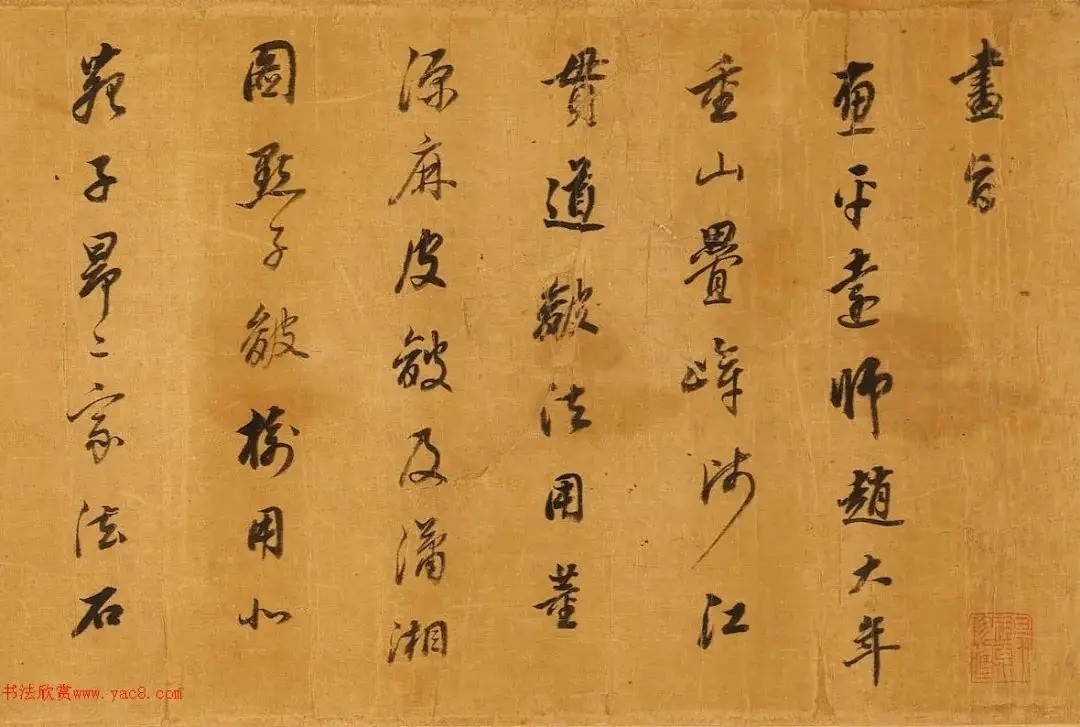 畫旨
畫平遠師趙大年
重山疊嶂師江
貫道皴法用董
源麻皮皴及瀟湘
圖點子皴樹用北
苑子昂二家法石
书法欣赏www.yac8.com